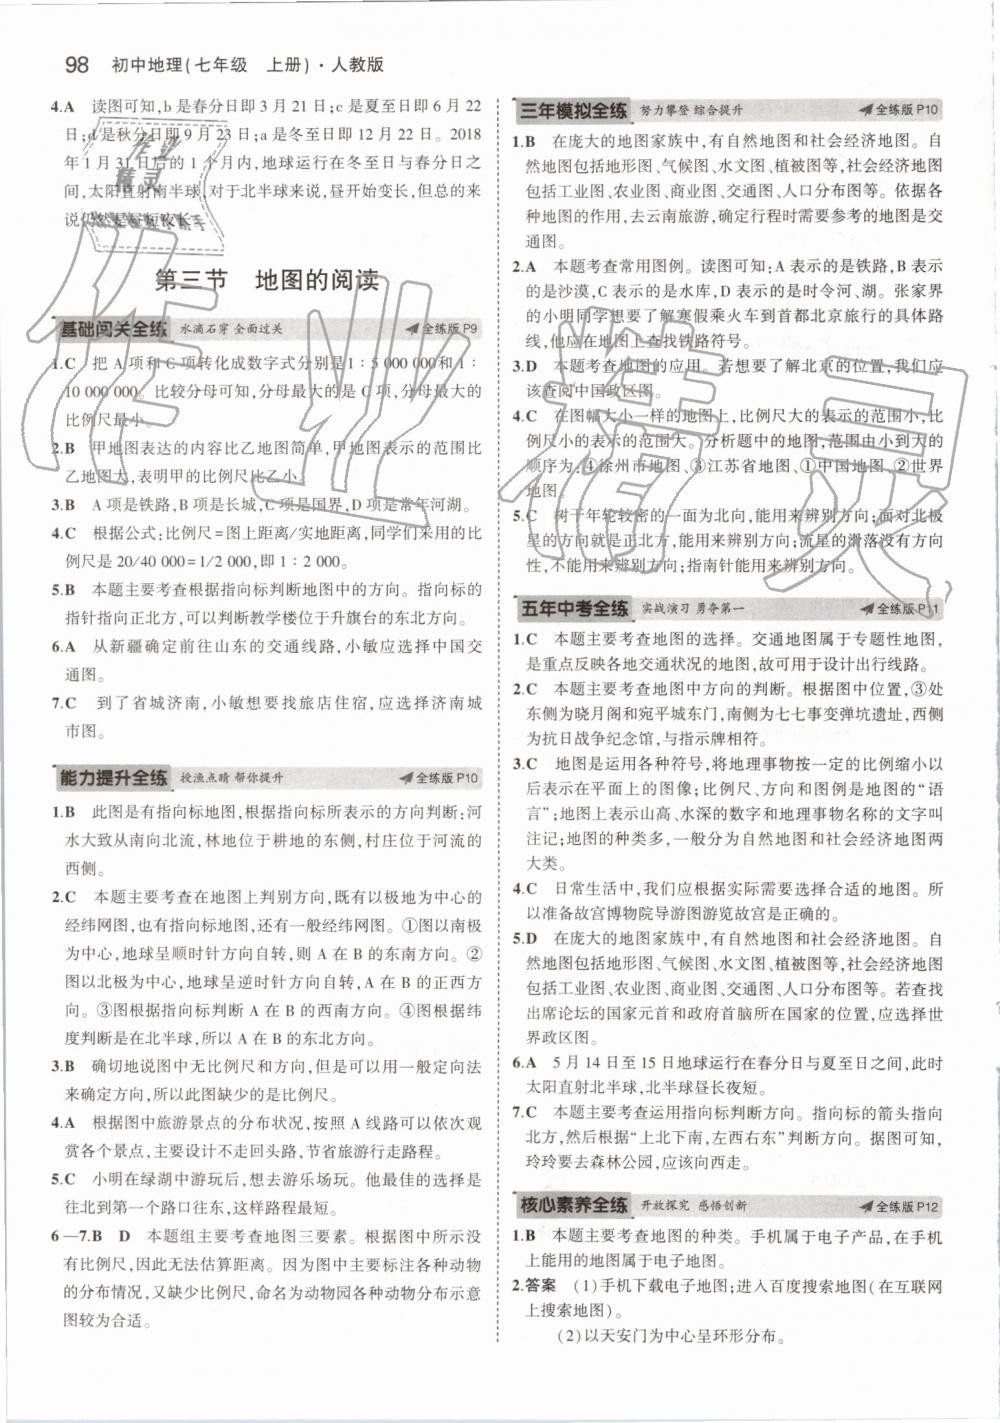 98 初中地理(七年级 上册)·人教版
4.A 读图可知,b是春分日即3月21日;c是夏至日即6月22
日;d是秋分日即9月23日;a是冬至日即12月22日。2018
年1月31日后的1个月内,地球运行在冬至日与春分日之
间,太阳直射南半球,对于北半球来说,昼开始变长,但总的来
说仍然是昼短夜长。
第三节 地图的阅读
基础闯关全练 水滴石穿 全面过关 全练版P9
1.C 把A项和C项转化成数字式分别是1∶5 000 000和1∶
10 000 000。比较分母可知,分母最大的是C项,分母最大的
比例尺最小。
2.B 甲地图表达的内容比乙地图简单,甲地图表示的范围比
乙地图大,表明甲的比例尺比乙小。
3.B A项是铁路,B项是长城,C项是国界,D项是常年河湖。
4.C 根据公式:比例尺=图上距离/实地距离,同学们采用的比
例尺是20/40 000=1/2 000,即1∶2 000。
5.B 本题主要考查根据指向标判断地图中的方向。指向标的
指针指向正北方,可以判断教学楼位于升旗台的东北方向。
6.A 从新疆确定前往山东的交通线路,小敏应选择中国交
通图。
7.C 到了省城济南,小敏想要找旅店住宿,应选择济南城
市图。
能力提升全练 授渔点睛 帮你提升 全练版P10
1.B 此图是有指向标地图,根据指向标所表示的方向判断:河
水大致从南向北流,林地位于耕地的东侧,村庄位于河流的
西侧。
2.C 本题主要考查在地图上判别方向,既有以极地为中心的
经纬网图,也有指向标地图,还有一般经纬网图。①图以南极
为中心,地球呈顺时针方向自转,则A在B的东南方向。②
图以北极为中心,地球呈逆时针方向自转,A在B的正西方
向。③图根据指向标判断A在B的西南方向。④图根据纬
度判断是在北半球,所以A在B的东北方向。
3.B 确切地说图中无比例尺和方向,但是可以用一般定向法
来确定方向,所以此图缺少的是比例尺。
4.A 根据图中旅游景点的分布状况,按照A线路可以依次观
赏各个景点,主要设计不走回头路,节省旅行走路程。
5.C 小明在绿湖中游玩后,想去游乐场玩。他最佳的选择是
往北到第一个路口往东,这样路程最短。
6—7.B D 本题组主要考查地图三要素。图中例示没有
比例尺,因此无法估算距离。因为图中主要标注各种动物
的分布情况,又缺少比例尺,命名为动物园各种动物分布示意
图较为合适。
三年模拟全练 努力攀登 综合提升 全练版P10
1.B 在庞大的地图家族中,有自然地图和社会经济地图。自
然地图包括地形图、气候图、水文图、植被图等,社会经济地图
包括工业图、农业图、商业图、交通图、人口分布图等。依据各
种地图的作用,去云南旅游,确定行程时需要参考的地图是交
通图。
2.A 本题考查常用图例。读图可知:A表示的是铁路,B表示
的是沙漠,C表示的是水库,D表示的是时令河、湖。张家界
的小明同学想要了解寒假乘火车到首都北京旅行的具体路
线,他应在地图上查找铁路符号。
3.D 本题考查地图的应用。若想要了解北京的位置,我们应
该查阅中国政区图。
4.C 在图幅大小一样的地图上,比例尺大的表示的范围小,比
例尺小的表示的范围大。分析题中的地图,范围由小到大的
顺序为:④徐州市地图、③江苏省地图、①中国地图、②世界
地图。
5.C 树干年轮较密的一面为北向,能用来辨别方向;面对北极
星的方向就是正北方,能用来辨别方向;流星的滑落没有方向
性,不能用来辨别方向;指南针能用来辨别方向。
五年中考全练 实战演习 勇夺第一 全练版P11
1.C 本题主要考查地图的选择。交通地图属于专题性地图,
是重点反映各地交通状况的地图,故可用于设计出行线路。
2.C 本题主要考查地图中方向的判断。根据图中位置,③处
东侧为晓月阁和宛平城东门,南侧为七七事变弹坑遗址,西侧
为抗日战争纪念馆,与指示牌相符。
3.C 地图是运用各种符号,将地理事物按一定的比例缩小以
后表示在平面上的图像;比例尺、方向和图例是地图的“语
言”;地图上表示山高、水深的数字和地理事物名称的文字叫
注记;地图的种类多,一般分为自然地图和社会经济地图两
大类。
4.C 日常生活中,我们应根据实际需要选择合适的地图。所
以准备故宫博物院导游图游览故宫是正确的。
5.D 在庞大的地图家族中,有自然地图和社会经济地图。自
然地图包括地形图、气候图、水文图、植被图等,社会经济地图
包括工业图、农业图、商业图、交通图、人口分布图等。若查找
出席论坛的国家元首和政府首脑所在国家的位置,应选择世
界政区图。
6.A 5月14日至15日地球运行在春分日与夏至日之间,此时
太阳直射北半球,北半球昼长夜短。
7.C 本题主要考查运用指向标判断方向。指向标的箭头指向
北方,然后根据“上北下南,左西右东”判断方向。据图可知,
玲玲要去森林公园,应该向西走。
核心素养全练 开放探究 感悟创新 全练版P12
1.B 本题主要考查地图的种类。手机属于电子产品,在手机
上能用的地图属于电子地图。
2.答案 (1)手机下载电子地图;进入百度搜索地图(在互联网
上搜索地图)。
(2)以天安门为中心呈环形分布。
作业精灵
作业精灵